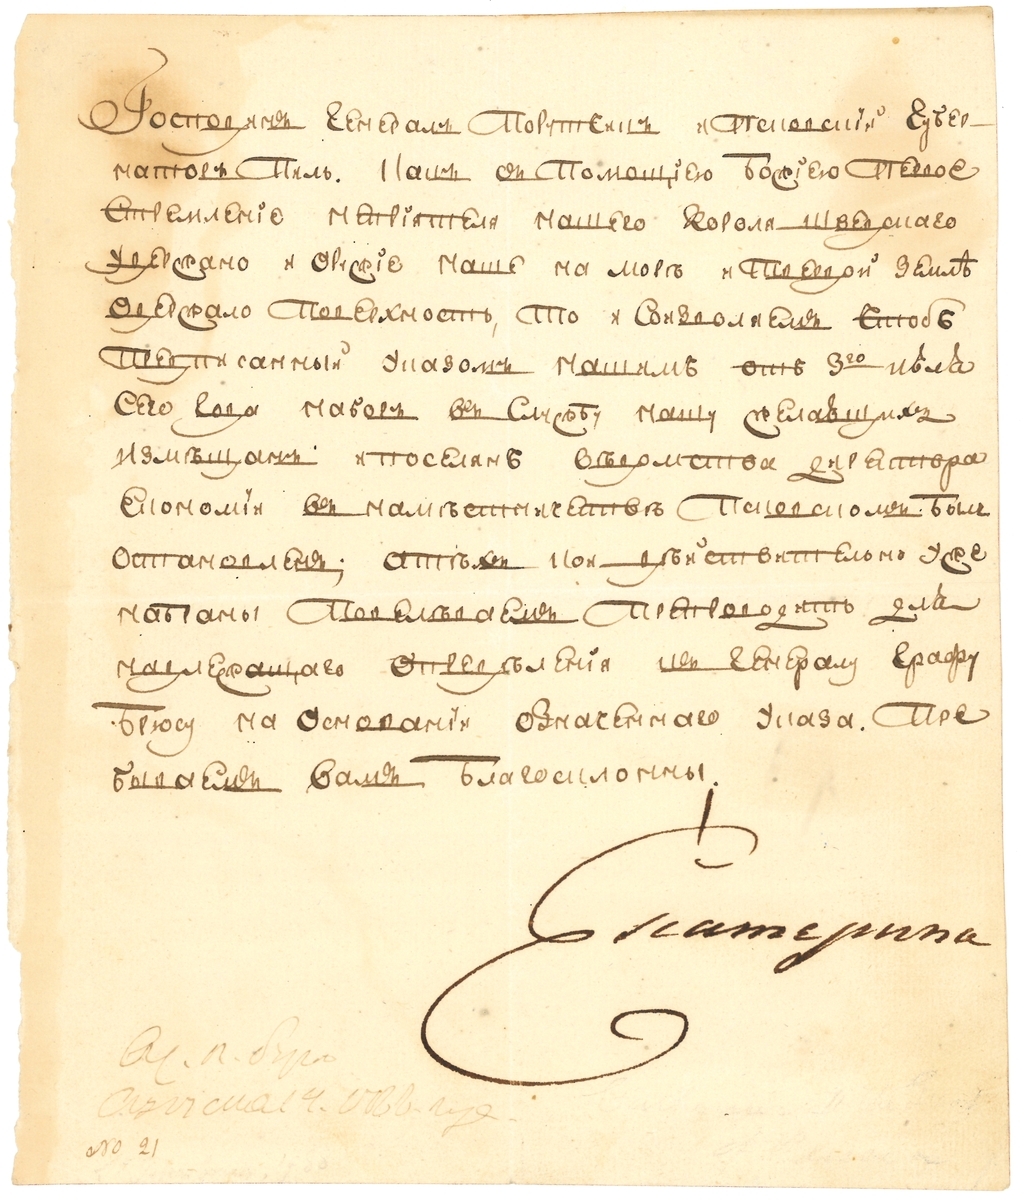 Господинъ Генералъ Порутчикъ и Псковскій Губер-
наторъ Пиль. Какъ съ Помощію Божіею Первое
Стремленіе непріятеля нашего Короля шведскаго
Удержано и Оружіе наше на моръ и Твердой Землѣ
Одержало Поверхность, То и Соизволяемъ Чтобъ
Предписанный Указомъ нашимъ отъ 3го июля
Сего Года наборъ въ Службу нашу желающихъ
измѣщанъ ипоселянъ Вѣдомства директора
Економіи въ намѣстничествѣ Псковскомъ былъ
Остановленъ; атѣхъ кои дѣйствительно уже
набраны Повелѣваемъ Препроводить для
надлежащаго Опредѣленія къ Генералу Графу
Брюсу на Основаніи Означеннаго Указа. Пре
бываемъ Вамъ Благосклонны.
Екатерина
No 21